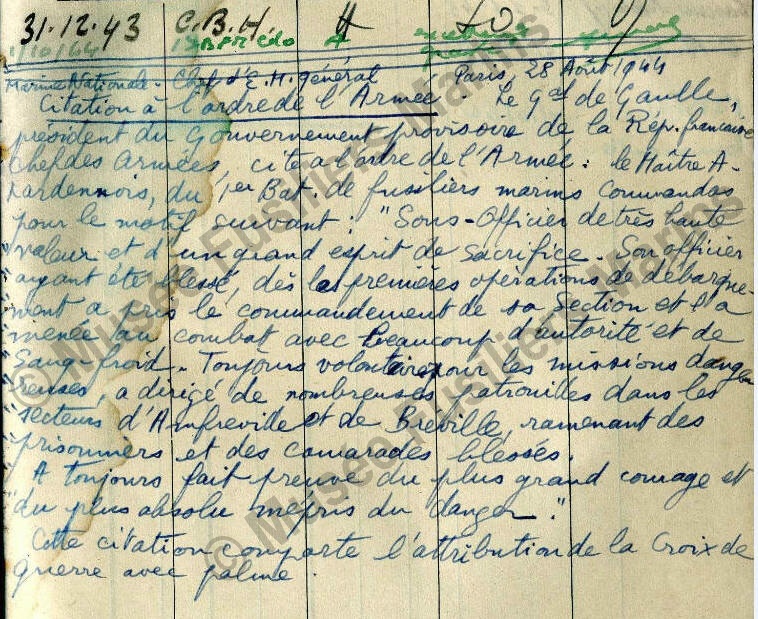 31.12.43 C.B.H. 4 20
1/10/44
Marine Nationale - Chef d'E.M. général Paris, 28 Août 1944
Citation à l'ordre de l'Armée. Le Gal de Gaulle,
président du Gouvernement provisoire de la Rép. française
Chef des Armées, cite à l'ordre de l'Armée : le Maître A-
Lardennois, du 1er Bat. de fusiliers marins Commandos
pour le motif suivant : "Sous-Officier de très haute
"valeur et d'un grand esprit de sacrifice. Son officier
"ayant été blessé, dès les premières opérations de débarque-
"ment a pris le commandement de sa Section et l'a
"menée au combat avec beaucoup d'autorité et de
"Sang-froid. Toujours volontaire pour les missions dange
"reuses, a dirigé de nombreuses patrouilles dans les
"secteurs d'Amfreville et de Bréville, ramenant des
"prisonniers et des camarades blessés.
"A toujours fait preuve du plus grand courage et
"du plus absolu mépris du danger."
Cette citation comporte l'attribution de la Croix de
guerre avec palme.
© Musée Fusiliers Marins
© Musée Fusiliers Marins